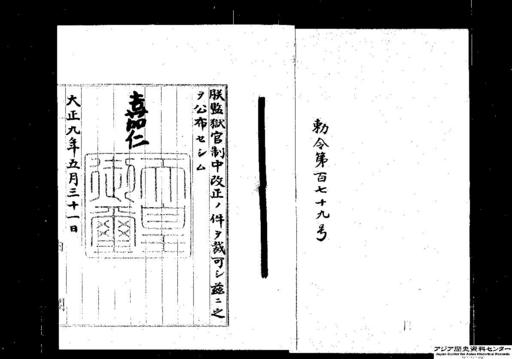 勅令第百七十九号
朕監獄官制中改正ノ件ヲ裁可シ茲ニ之
ヲ公布セシム
嘉仁
天皇
御璽
大正九年五月三十一日
内閣
アジア歴史資料センター
Japan Center for Asian Historical Records